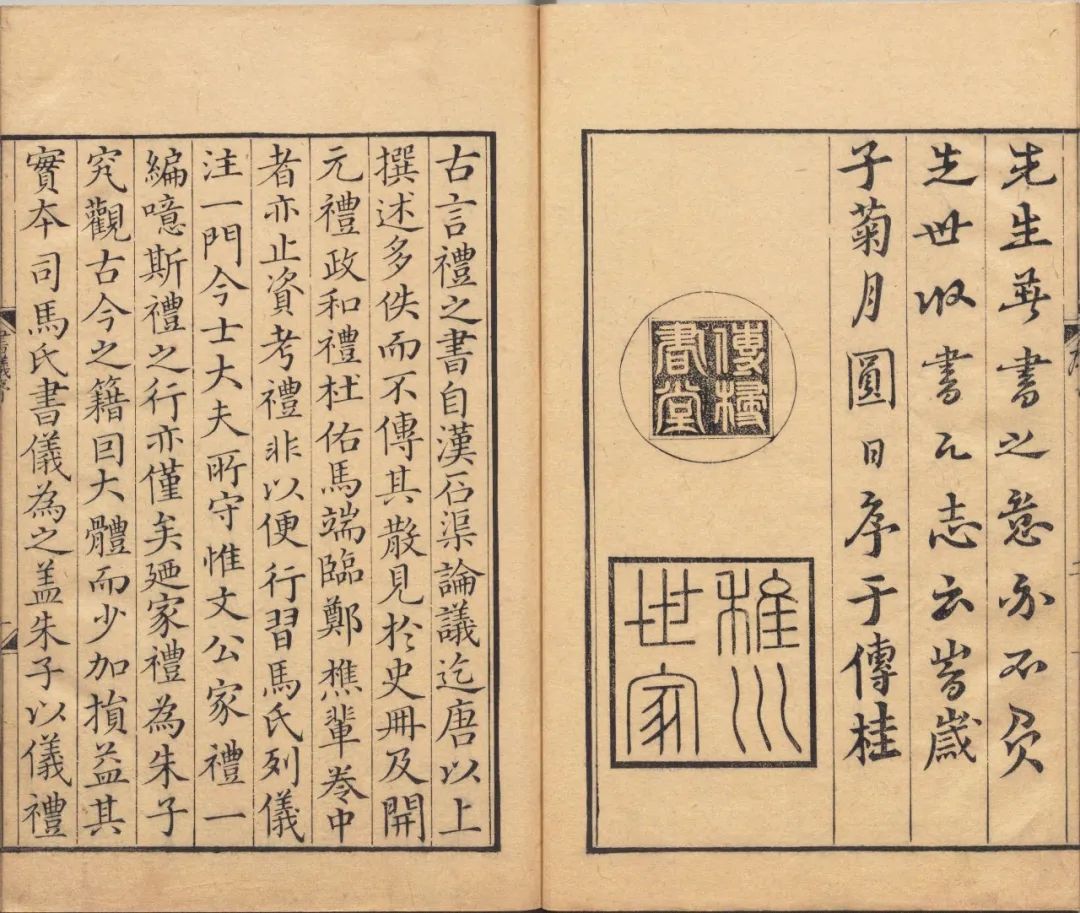 先生著書之意亦不負
先世收書之志云峕歲
子菊月圓日序于傳桂
書堂
稚川世家
古言禮之書自漢石渠論議迄唐以上
撰述多佚而不傳其散見於史冊及開
元禮政和禮杜佑馬端臨鄭樵輩卷中
者亦止資考禮非以便行習馬氏列儀
注一門今士大夫所守惟文公家禮一
編噫斯禮之行亦僅矣廼家禮為朱子
究觀古今之籍因大體而少加損益其
實本司馬氏書儀為之盖朱子以儀禮